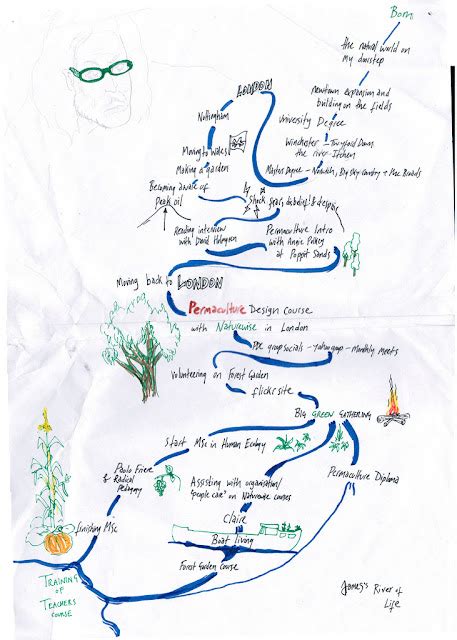 Born
the natural world on
my doorstep
newtown expansion and
building on the fields
University Degree
Winchester - Twyford Down
the river Itchen
Masters Degree - Norwich, Big sky country + the Broads
LONDON
Nottingham
Moving to Wales
Making a garden
Becoming aware of
peak oil
Shock fear, disbelief! & despair
Reading interview
with David Holmgren
Permaculture Intro
with Angie Polkey
at Poppit Sands
Moving back to LONDON
PERMACULTURE Design Course
with Naturewise in London
PDC group socials - yahoo group - Monthly meets
Volunteering on Forest Garden
flickr site
BIG GREEN GATHERING
Start MSc in Human Ecology
Paulo Friere
& Radical
Pedagogy
finishing MSc
Assisting with organisation/
'people care' on Naturewise courses
Permaculture Diploma
Claire
Boat living
Forest Garden Course
TRAINING OF
TEACHERS
COURSE
James's River of
Life